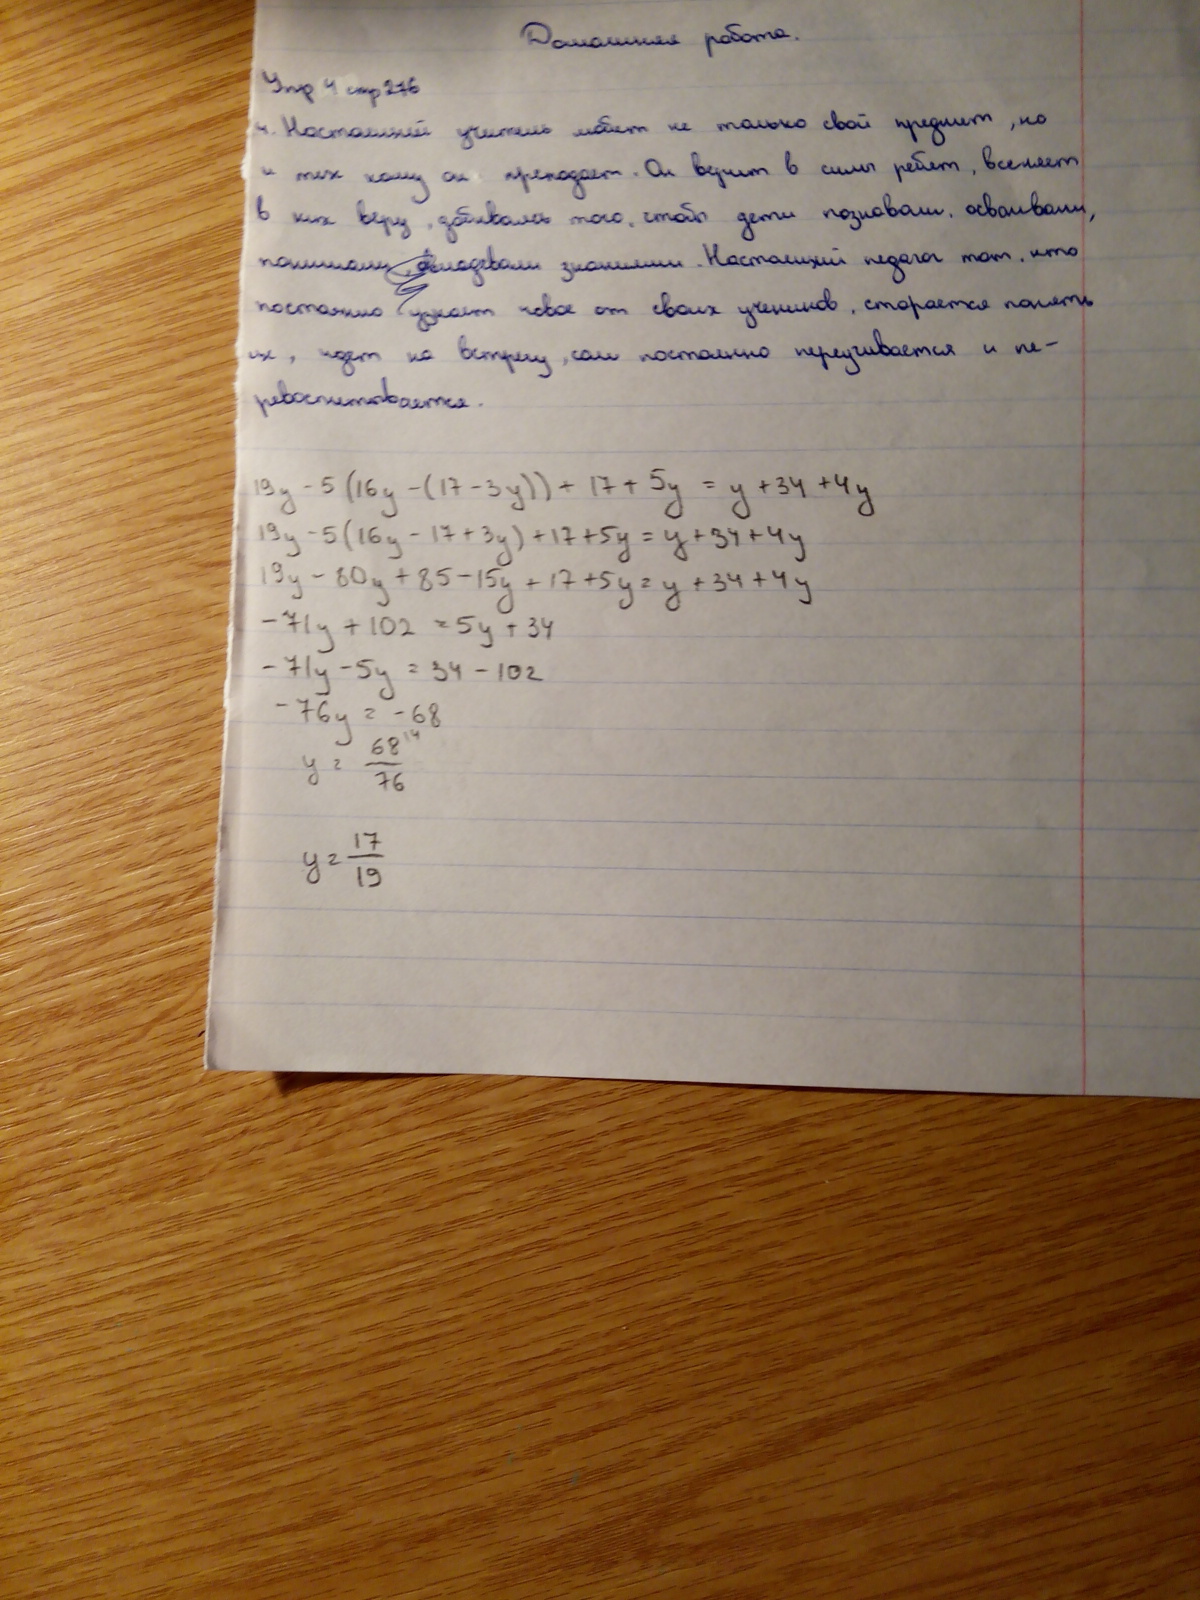 Домашняя работа.
Упр 4 стр 276
4. Настоящий учитель любит не только свой предмет, но
и тех кому он преподает. Он верит в силы ребят, вселяет
в них веру, добиваясь того, чтобы дети познавали, осваивали,
понимали, овладевали знаниями. Настоящий педагог тот, кто
постоянно узнает новое от своих учеников, старается понять
их, идет на встречу, сам постоянно переучивается и пе-
ревоспитывается.
19y - 5(16y - (17 - 3y)) + 17 + 5y = y + 34 + 4y
19y - 5(16y - 17 + 3y) + 17 + 5y = y + 34 + 4y
19y - 80y + 85 - 15y + 17 + 5y = y + 34 + 4y
-71y + 102 = 5y + 34
-71y - 5y = 34 - 102
-76y = -68
y = 68/76
y = 17/19